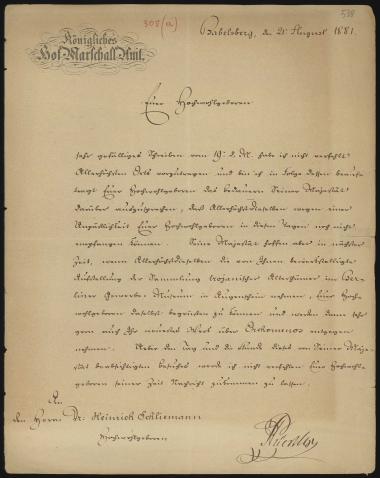 308 (a)
538
Königliches
Hof-Marschall-Amt.
Babelsberg, den 21 August 1881.
Euer Hochwohlgeboren
sehr gefälliges Schreiben vom 19. d. M. habe ich nicht verfehlt
Allerhöchsten Orts vorzutragen und bin ich in Folge dessen beauf-
tragt Euer Hochwohlgeboren das Bedauern Seiner Majestät
darüber auszusprechen, daß Allerhöchstdieselben wegen einer
Unpäßlichkeit Euer Hochwohlgeboren in diesen Tagen noch nicht
empfangen können. Seine Majestät hoffen aber in nächster
Zeit, wenn Allerhöchstdieselben die von Ihnen bewerkstelligte
Aufstellung der Sammlung trojanischer Alterthümer im Ber-
liner Gewerbe-Museum in Augenschein nehmen, Euer Hoch-
wohlgeboren daselbst begrüßen zu können und werden dann sehr
gern auch Ihr neustes Werk über Orchomenos entgegen
nehmen. Ueber den Tag und die Stunde dieses von Seiner Maje-
stät beabsichtigten Besuches werde ich nicht verfehlen Euer Hochwohl-
geboren seiner Zeit Nachricht zukommen zu lassen.
An
den Herrn Dr. Heinrich Schliemann
Hochwohlgeboren